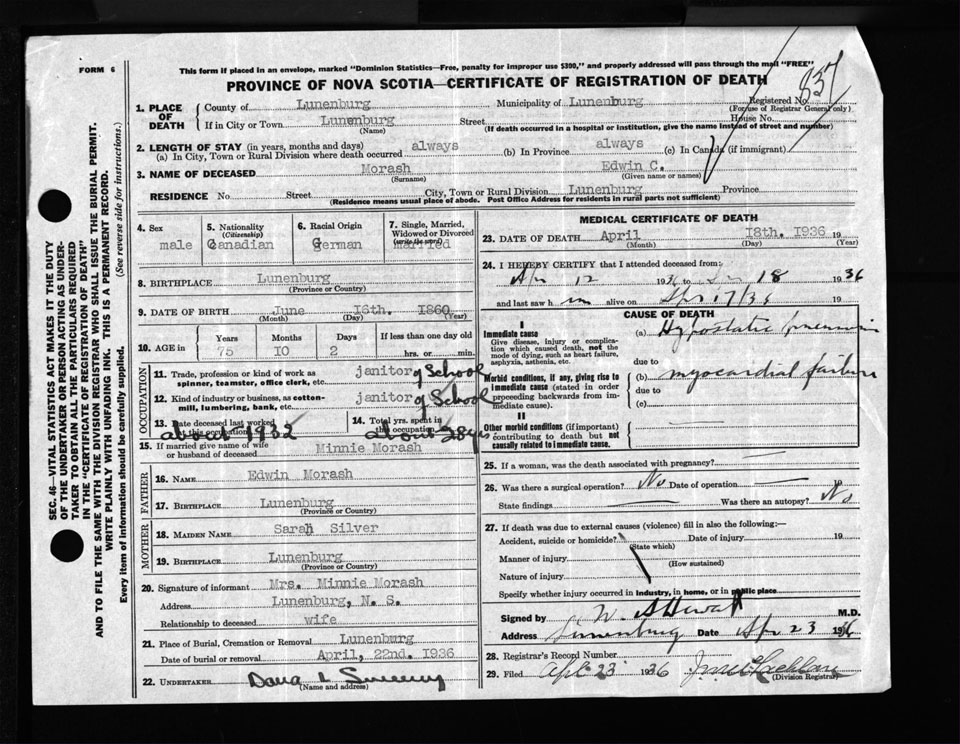 FORM 6
This form if placed in an envelope, marked "Dominion Statistics—Free, penalty for improper use $300," and properly addressed will pass through the mail "FREE"
PROVINCE OF NOVA SCOTIA—CERTIFICATE OF REGISTRATION OF DEATH
837
1. PLACE OF DEATH County of Lunenburg Municipality of Lunenburg Registered No.
(For use of Registrar General only)
If in City or Town Lunenburg Street House No.
(Name) (If death occurred in a hospital or institution, give the name instead of street and number)
2. LENGTH OF STAY (in years, months and days)
(a) In City, Town or Rural Division where death occurred always (b) In Province always (c) In Canada (if immigrant)
3. NAME OF DECEASED Morash Edwin C.
(Surname) (Given name or names)
RESIDENCE No. Street City, Town or Rural Division Lunenburg Province
(Residence means usual place of abode. Post Office Address for residents in rural parts not sufficient)
4. Sex male
5. Nationality (Citizenship) Canadian
6. Racial Origin German
7. Single, Married, Widowed or Divorced (write the word) married
8. BIRTHPLACE Lunenburg
(Province or Country)
9. DATE OF BIRTH June 16th. 1860
(Month) (Day) (Year)
10. AGE in Years Months Days If less than one day old
75 10 2 hrs. or min.
OCCUPATION
11. Trade, profession or kind of work as spinner, teamster, office clerk, etc. janitor of School
12. Kind of industry or business, as cotton-mill, lumbering, bank, etc. janitor of School
13. Date deceased last worked at this occupation about 1932
14. Total yrs. spent in this occupation about 28 yrs
15. If married give name of wife or husband of deceased Minnie Morash
FATHER
16. NAME Edwin Morash
17. BIRTHPLACE Lunenburg
(Province or Country)
MOTHER
18. MAIDEN NAME Sarah Silver
19. BIRTHPLACE Lunenburg
(Province or Country)
20. Signature of informant Mrs. Minnie Morash
Address Lunenburg, N. S.
Relationship to deceased wife
21. Place of Burial, Cremation or Removal Lunenburg
Date of burial or removal April, 22nd. 1936
22. UNDERTAKER Dana L Sweeny
(Name and address)
MEDICAL CERTIFICATE OF DEATH
23. DATE OF DEATH April 18th. 1936 19
(Month) (Day) (Year)
24. I HEREBY CERTIFY that I attended deceased from:
Apr 12 1936 to 18 1936
and last saw him alive on Apr 17/36 19
CAUSE OF DEATH
I
Immediate cause (a) Hypostatic pneumonia
Give disease, injury or complication which caused death, not the mode of dying, such as heart failure, asphyxia, asthenia, etc.
due to
Morbid conditions, if any, giving rise to immediate cause (stated in order proceeding backwards from immediate cause). (b) myocardial failure
due to
(c)
II
Other morbid conditions (if important) contributing to death but not causally related to immediate cause.
25. If a woman, was the death associated with pregnancy?
26. Was there a surgical operation? No Date of operation
State findings Was there an autopsy? No
27. If death was due to external causes (violence) fill in also the following:—
Accident, suicide or homicide? Date of injury 19
(State which)
Manner of injury
(How sustained)
Nature of injury
Specify whether injury occurred in industry, in home, or in public place
Signed by M.D.
Address Lunenburg Date Apr 23 1936
28. Registrar's Record Number
29. Filed Apl 23 1936
(Division Registrar)
SEC. 46—VITAL STATISTICS ACT MAKES IT THE DUTY
OF THE UNDERTAKER OR PERSON ACTING AS UNDER-
TAKER TO OBTAIN ALL THE PARTICULARS REQUIRED
IN THE "CERTIFICATE OF REGISTRATION OF DEATH"
AND TO FILE THE SAME WITH THE DIVISION REGISTRAR WHO SHALL ISSUE THE BURIAL PERMIT.
WRITE PLAINLY WITH UNFADING INK. THIS IS A PERMANENT RECORD.
Every item of information should be carefully supplied. (See reverse side for instructions.)